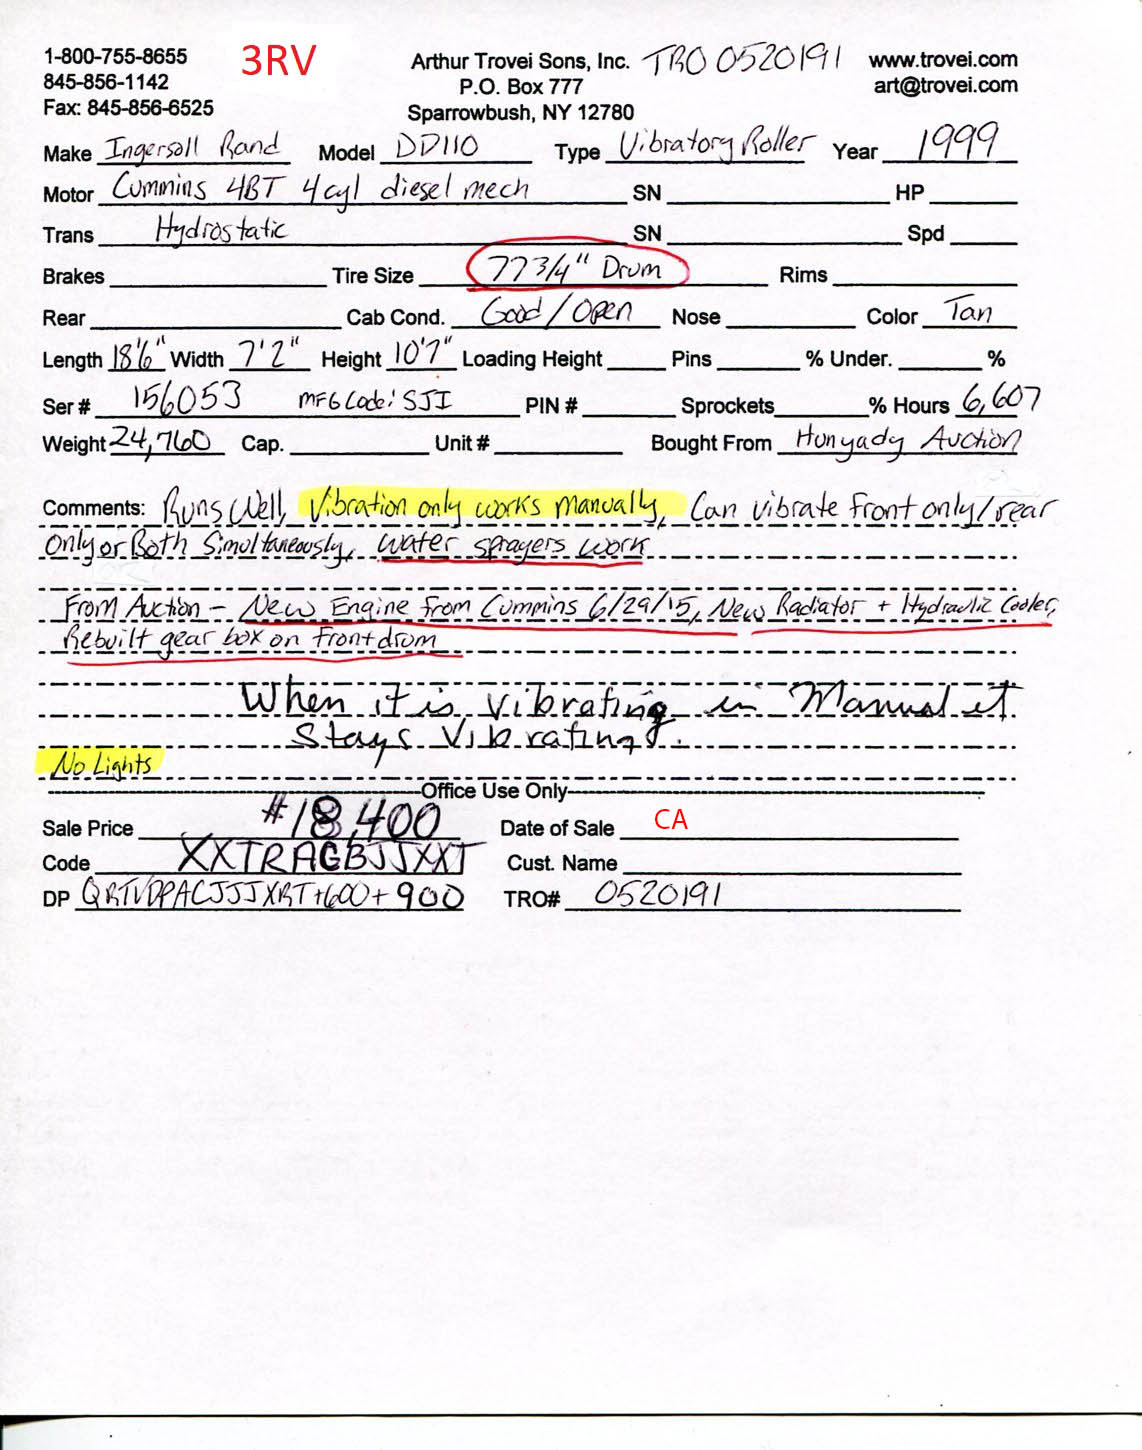 1-800-755-8655 3RV Arthur Trovei Sons, Inc. TRO 0520191 www.trovei.com
845-856-1142 P.O. Box 777 art@trovei.com
Fax: 845-856-6525 Sparrowbush, NY 12780
Make Ingersoll Rand Model DD110 Type Vibratory Roller Year 1999
Motor Cummins 4BT 4cyl diesel mech SN HP
Trans Hydrostatic SN Spd
Brakes Tire Size 77 3/4" Drum Rims
Rear Cab Cond. Good/Open Nose Color Tan
Length 18'6" Width 7'2" Height 10'7" Loading Height Pins % Under. %
Ser # 156053 MFG Code: SJI PIN # Sprockets % Hours 6,607
Weight 24,760 Cap. Unit # Bought From Hunyady Auction
Comments: Runs Well, Vibration only works manually, Can vibrate front only/rear
only or Both Simultaneously, water sprayers work
From Auction - New Engine from Cummins 6/29/15, New Radiator + Hydraulic Cooler,
Rebuilt gear box on front drum
When it is vibrating in Manual it
Stays Vibrating.
No Lights
Office Use Only
Sale Price #18,400 Date of Sale CA
Code XXTRACBJJXXT Cust. Name
DP QRTVDPACJJJXRT+600+900 TRO# 0520191